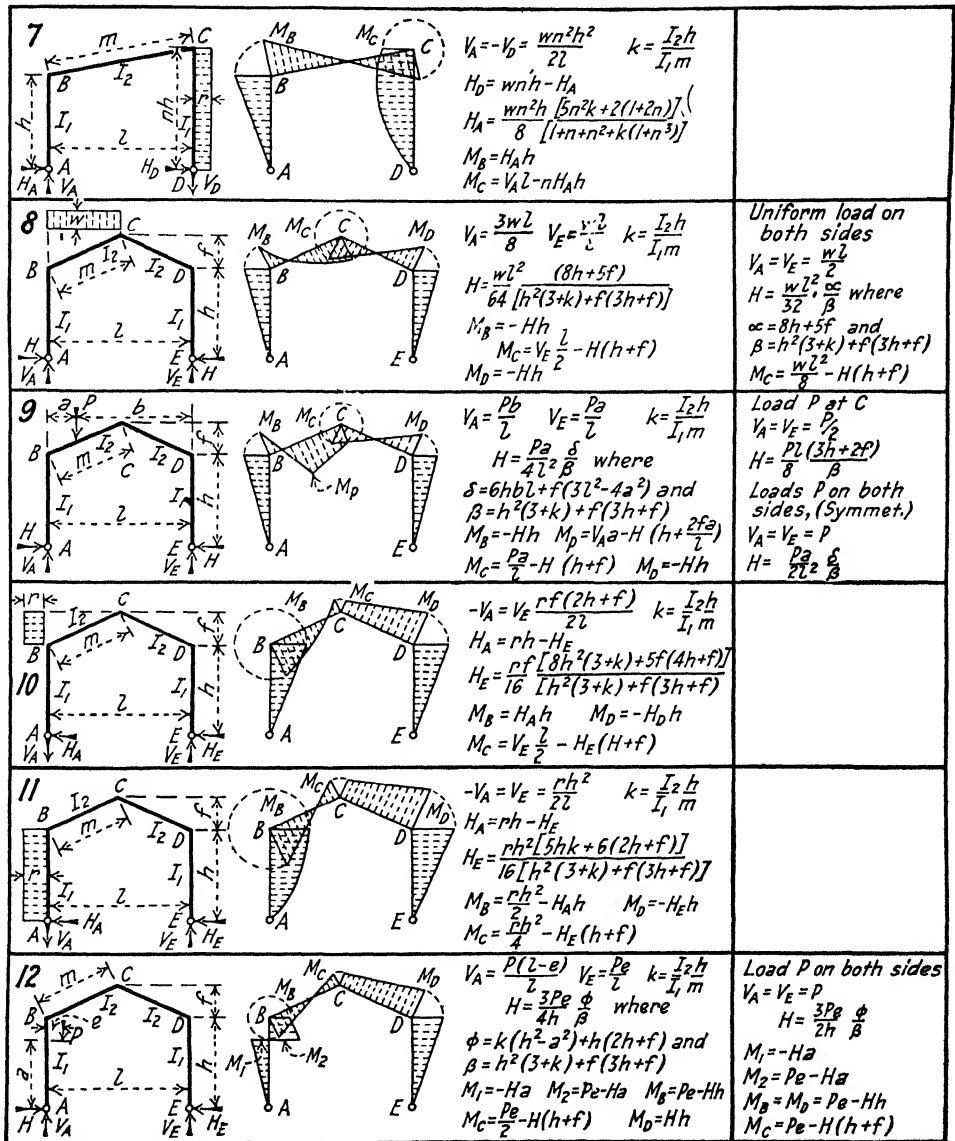 7
m
C
B
I₂
h
I₁
l
nh
I₁
r
H_A
A
V_A
H_D
D
V_D
M_B
M_C
C
B
A
D
V_A=-V_D= wn²h²/2l    k= I₂h/I₁m
H_D= wnh-H_A
H_A= wn²h/8 [5n²k+2(1+2n)]/[1+n+n²+k(1+n³)]
M_B=H_Ah
M_C=V_Al-nH_Ah
8
w
C
B
I₂
m
I₂
D
f
I₁
l
I₁
h
H
A
V_A
E
V_E
H
M_B
M_C
C
M_D
B
D
A
E
V_A= 3wl/8    V_E=    k= I₂h/I₁m
H= wl²/64 (8h+5f)/[h²(3+k)+f(3h+f)]
M_B=-Hh
M_C=V_E l/2 -H(h+f)
M_D=-Hh
Uniform load on
both sides
V_A=V_E= wl/2
H= wl²/32 · α/β where
α=8h+5f and
β=h²(3+k)+f(3h+f)
M_C= wl²/8 -H(h+f)
9
a
P
b
B
I₂
m
C
I₂
D
f
I₁
l
I₁
h
H
A
V_A
E
V_E
H
M_B
M_C
C
M_D
B
D
M_P
A
E
V_A= Pb/l    V_E= Pa/l    k= I₂h/I₁m
H= Pa/4l² δ/β where
δ=6hbl+f(3l²-4a²) and
β=h²(3+k)+f(3h+f)
M_B=-Hh  M_P=V_Aa-H(h+ 2fa/l)
M_C= Pa/l -H(h+f)    M_D=-Hh
Load P at C
V_A=V_E=P/2
H= Pl/8 (3h+2f)/β
Loads P on both
sides,(Symmet.)
V_A=V_E=P
H= Pa/2l² δ/β
10
r
C
I₂
m
B
I₂
D
f
I₁
l
I₁
h
A
V_A
H_A
E
V_E
H_E
M_B
M_C
M_D
B
C
D
A
E
-V_A=V_E rf(2h+f)/2l    k= I₂h/I₁m
H_A=rh-H_E
H_E= rf/16 [8h²(3+k)+5f(4h+f)]/[h²(3+k)+f(3h+f)
M_B=H_Ah    M_D=-H_Dh
M_C=V_E l/2 -H_E(H+f)
11
C
B
I₂
m
I₂
D
f
r
I₁
l
I₁
h
A
V_A
H_A
E
V_E
H_E
M_B
M_C
M_D
B
C
D
A
E
-V_A=V_E= rh²/2l    k= I₂h/I₁m
H_A=rh-H_E
H_E= rh²[5hk+6(2h+f)]/16[h²(3+k)+f(3h+f)]
M_B= rh²/2 -H_Ah    M_D=-H_Eh
M_C= rh²/4 -H_E(h+f)
12
m
C
B
I₂
I₂
D
f
e
P
I₁
a
l
I₁
h
H
A
V_A
E
V_E
H_E
M_B
M_C
M_D
B
C
D
M₁
M₂
A
E
V_A= P(l-e)/l  V_E= Pe/l  k= I₂h/I₁m
H= 3Pe/4h ϕ/β where
ϕ=k(h²-a²)+h(2h+f) and
β=h²(3+k)+f(3h+f)
M₁=-Ha  M₂=Pe-Ha  M_B=Pe-Hh
M_C= Pe/2 -H(h+f)    M_D=Hh
Load P on both sides
V_A=V_E=P
H= 3Pe/2h ϕ/β
M₁=-Ha
M₂=Pe-Ha
M_B=M_D=Pe-Hh
M_C=Pe-H(h+f)